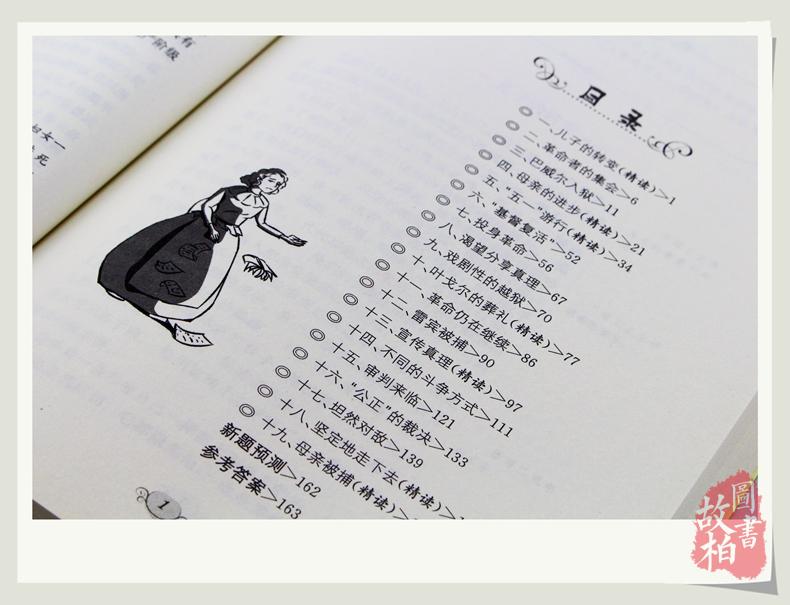 有
阶级
妇女一
死
目录
一、儿子的转变(精读)>1
二、革命者的集会>6
三、巴威尔入狱>11
四、母亲的进步(精读)>21
五、“五一”游行(精读)>34
六、“基督复活”>52
七、投身革命>56
八、渴望分享真理>67
九、戏剧性的越狱>70
十、叶戈尔的葬礼(精读)>77
十一、革命仍在继续>86
十二、雷宾被捕>90
十三、宣传真理(精读)>97
十四、不同的斗争方式>111
十五、审判来临>121
十六、“公正”的裁决>133
十七、坦然对敌>139
十八、坚定地走下去(精读)>
十九、母亲被捕(精读)>
新题预测>162
参考答案>163
1
故柏
圖書